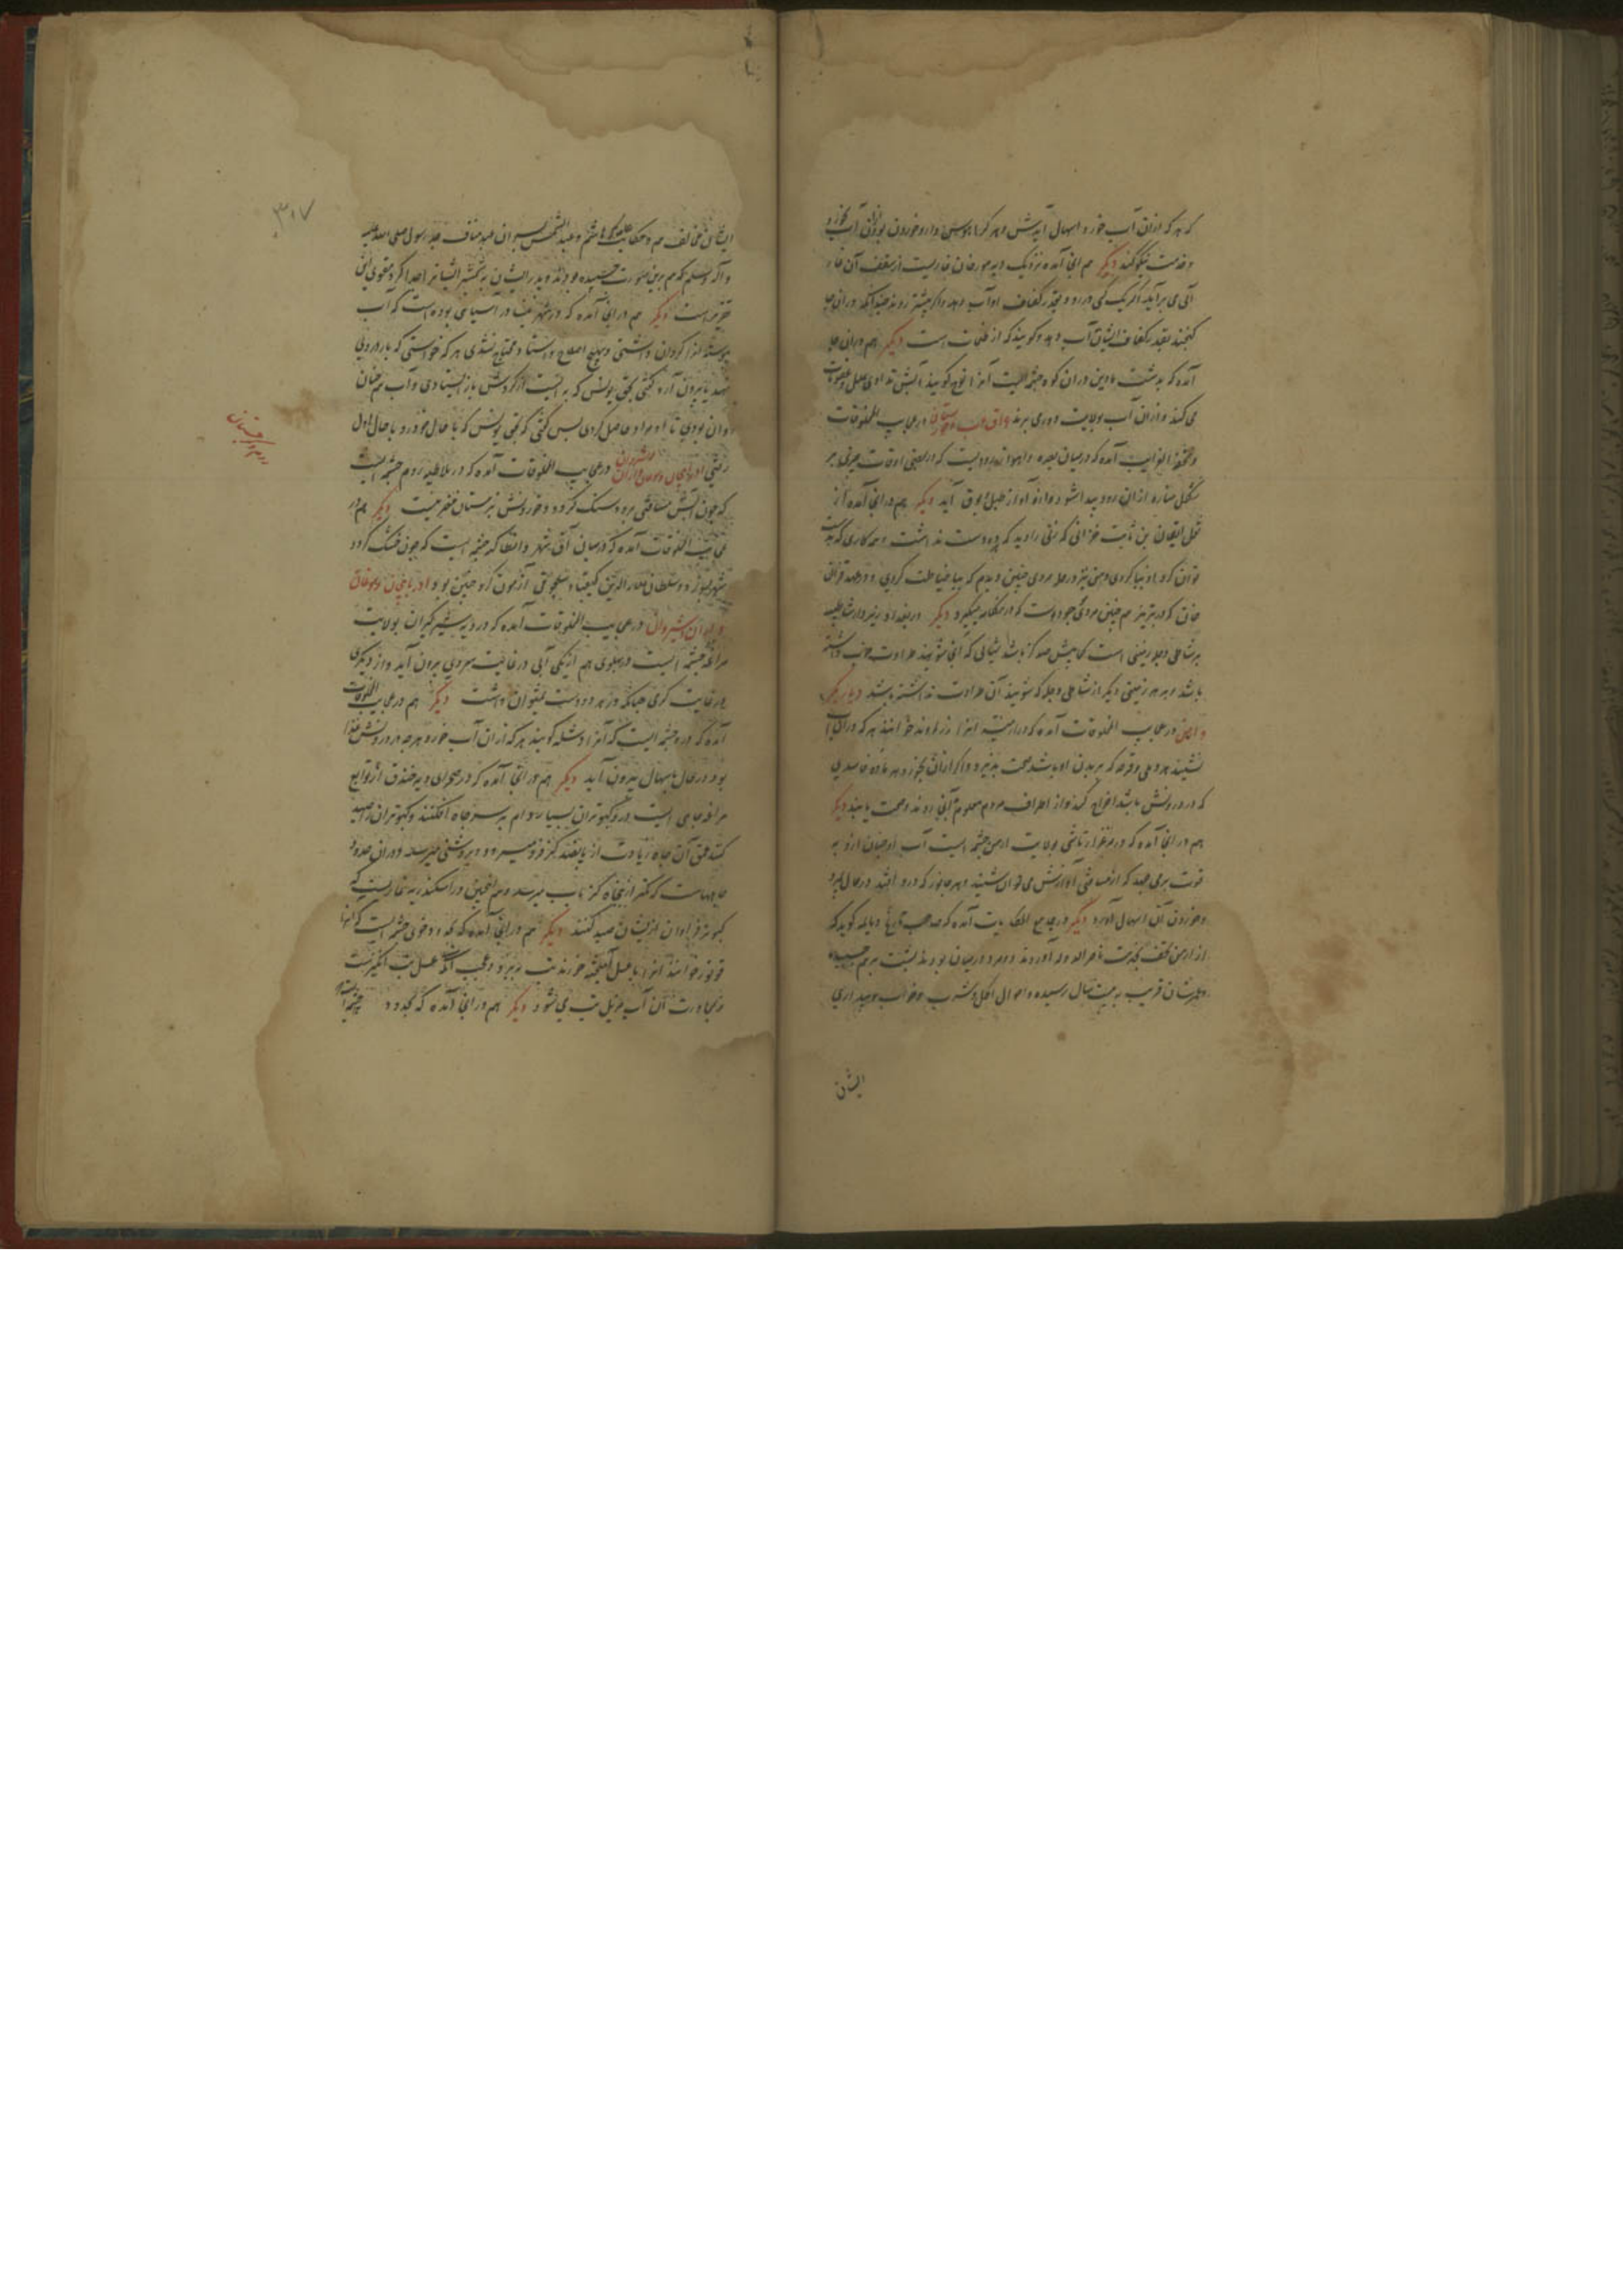 که هر که ازان آب خورد اسهال آیدش و هر کرا هوس دارو خوردن بود ازان آب خورد
و خدمت نیکو کند دیگر هم آنجا آمده نزدیک دیه مورخان غاریست از سقف آن غار
آبی می برآید اگر یک کس در رود بقدر کفاف او آب دهد و اگر بیشتر روند چندانکه دران جا
گنجند بقدر کفاف ایشان آب دهد و گویند که از طلسمات است دیگر هم دران جا
آمده که بدشت بارین دران کوه چشمه ایست آنرا نوح گویند آبش تداوی علل و عضوها
می کند و ازان آب بولایت دور می برند در عجایب المخلوقات
و تحفة الغرایب آمده که در میان بصره و اهواز رودیست که در بعضی اوقات چیزی بر
شکل مناره ازان رود پیدا شود و ازو آواز طبل و بوق آید دیگر هم در آنجا آمده از
قول لقمان بن ثابت خزانی که زنی را دید که دو دست نداشت و هر کاری که بدست
توان کرد او بپا کردی و من نیز در حله مردی چنین دیدم که بپا خیاطت کردی و در عهد غزان
خان که در تبریز هم چنین مردی بود است دیگر در بغداد نیز در شاطیه
بر شاطی دجله زمینی است که بیش صد گز باشد ثیابی که آنجا شویند طراوت خوب داشته
باشد و بهر زمینی دیگر از شاطی دجله که شویند آن طراوت نداشته باشد دیار بکر
و ارمن در عجایب المخلوقات آمده که در ارمنیه آنرا زراوند خوانند هر که دران آب
نشیند هر دملی و قرحه که بر بدن او باشد صحت پذیرد و اگر ازان بخورد هر ماده فاسدی
که در درونش باشد اخراج کند و از اطراف مردم معلوم آنجا روند و صحت یابند دیگر
هم در آنجا آمده که در مرغزار بولایت ارمن چشمه ایست آب او چنان ازو به
قوت برمی جهد که از مسافتی آوازش می توان شنید و هر جانور که درو افتد در حال بمیرد
و خوردن آن اسهال آورد دیگر در جامع الحکایات آمده که صاحب تاریخ دیالمه گوید که
از ارمن تحفه بخدمت ناصر الدوله آوردند دو مرد در میان بودند پشت برهم چسبیده
و عمرشان قریب به بیست سال رسیده و احوال اکل و شرب و خواب و بیداری
ایشان
۳۱۷
ایشان مخالف هم و حکایت هاشم و عبد الشمس پسران عبد مناف جد رسول صلی الله علیه
و آله وسلم که هم برین صورت چسبیده بودند و پدر ایشان بشمشیر ایشانرا جدا کرد مقوی این
تقریر است دیگر هم در آنجا آمده که در شهر آسیای بوده است که آب
پیوسته آنرا گردان داشتی و بهیچ اصلاح و استاد محتاج نشدی هر که خواستی که بار درو
نهد یا بیرون آرد گفتی بحق یونس که بایست از گردش باز ایستادی و آب هم چنان
روان بودی تا او مراد حاصل کردی پس گفتی که بحق یونس که با حال خود رو با حال اول
رفتی در عجایب المخلوقات آمده که در ملاطیه روم چشمه ایست
که چون آبش مسافتی برود سنگ گردد و خوردنش زمستان مضر نیست دیگر هم در
عجایب المخلوقات آمده که در میان آق شهر و انطاکیه چشمه ایست که چون خشک گردد
سلطان علاء الدین کیقباد سلجوقی آزمون کرد چنین بود آذربایجان و موغان
و اران و شیروان در عجایب المخلوقات آمده که در دیه شیرکیران بولایت
مراغه چشمه ایست در پهلوی هم از یکی آبی در غایت سردی بیرون آید و از دیگری
در غایت گرمی چنانکه در هر دو دست نمیتوان داشت دیگر هم در عجایب المخلوقات
آمده که دره چشمه ایست که آنرا گویند هر که ازان آب خورد هرچه در درونش غذا
بود در حال باسهال بیرون آید دیگر هم در آنجا آمده که در صحرای دیه خندق از توابع
مراغه چاهی است درو کبوتران بسیار دام بر سر چاه افکنند و کبوتران را صید
کنند عمق آن چاه زیادت از پانصد گز فرو میرود و بروشنی میرسد و دران حدود
چاههاست که کمتر از پنجاه گز بآب میرسد و هم چنین در اسکندریه غاریست که
کبوتر فراوان ازیشان صید کنند دیگر هم در آنجا آمده که بحدود خوی چشمه ایست که آنرا
خوانند آنرا با عسل آمیخته خورند تب ببرد و عجب آنکه عسل تب انگیزست
و بمجاورت آن آب مزیل تب می شود دیگر هم در آنجا آمده که بحدود چشمه است